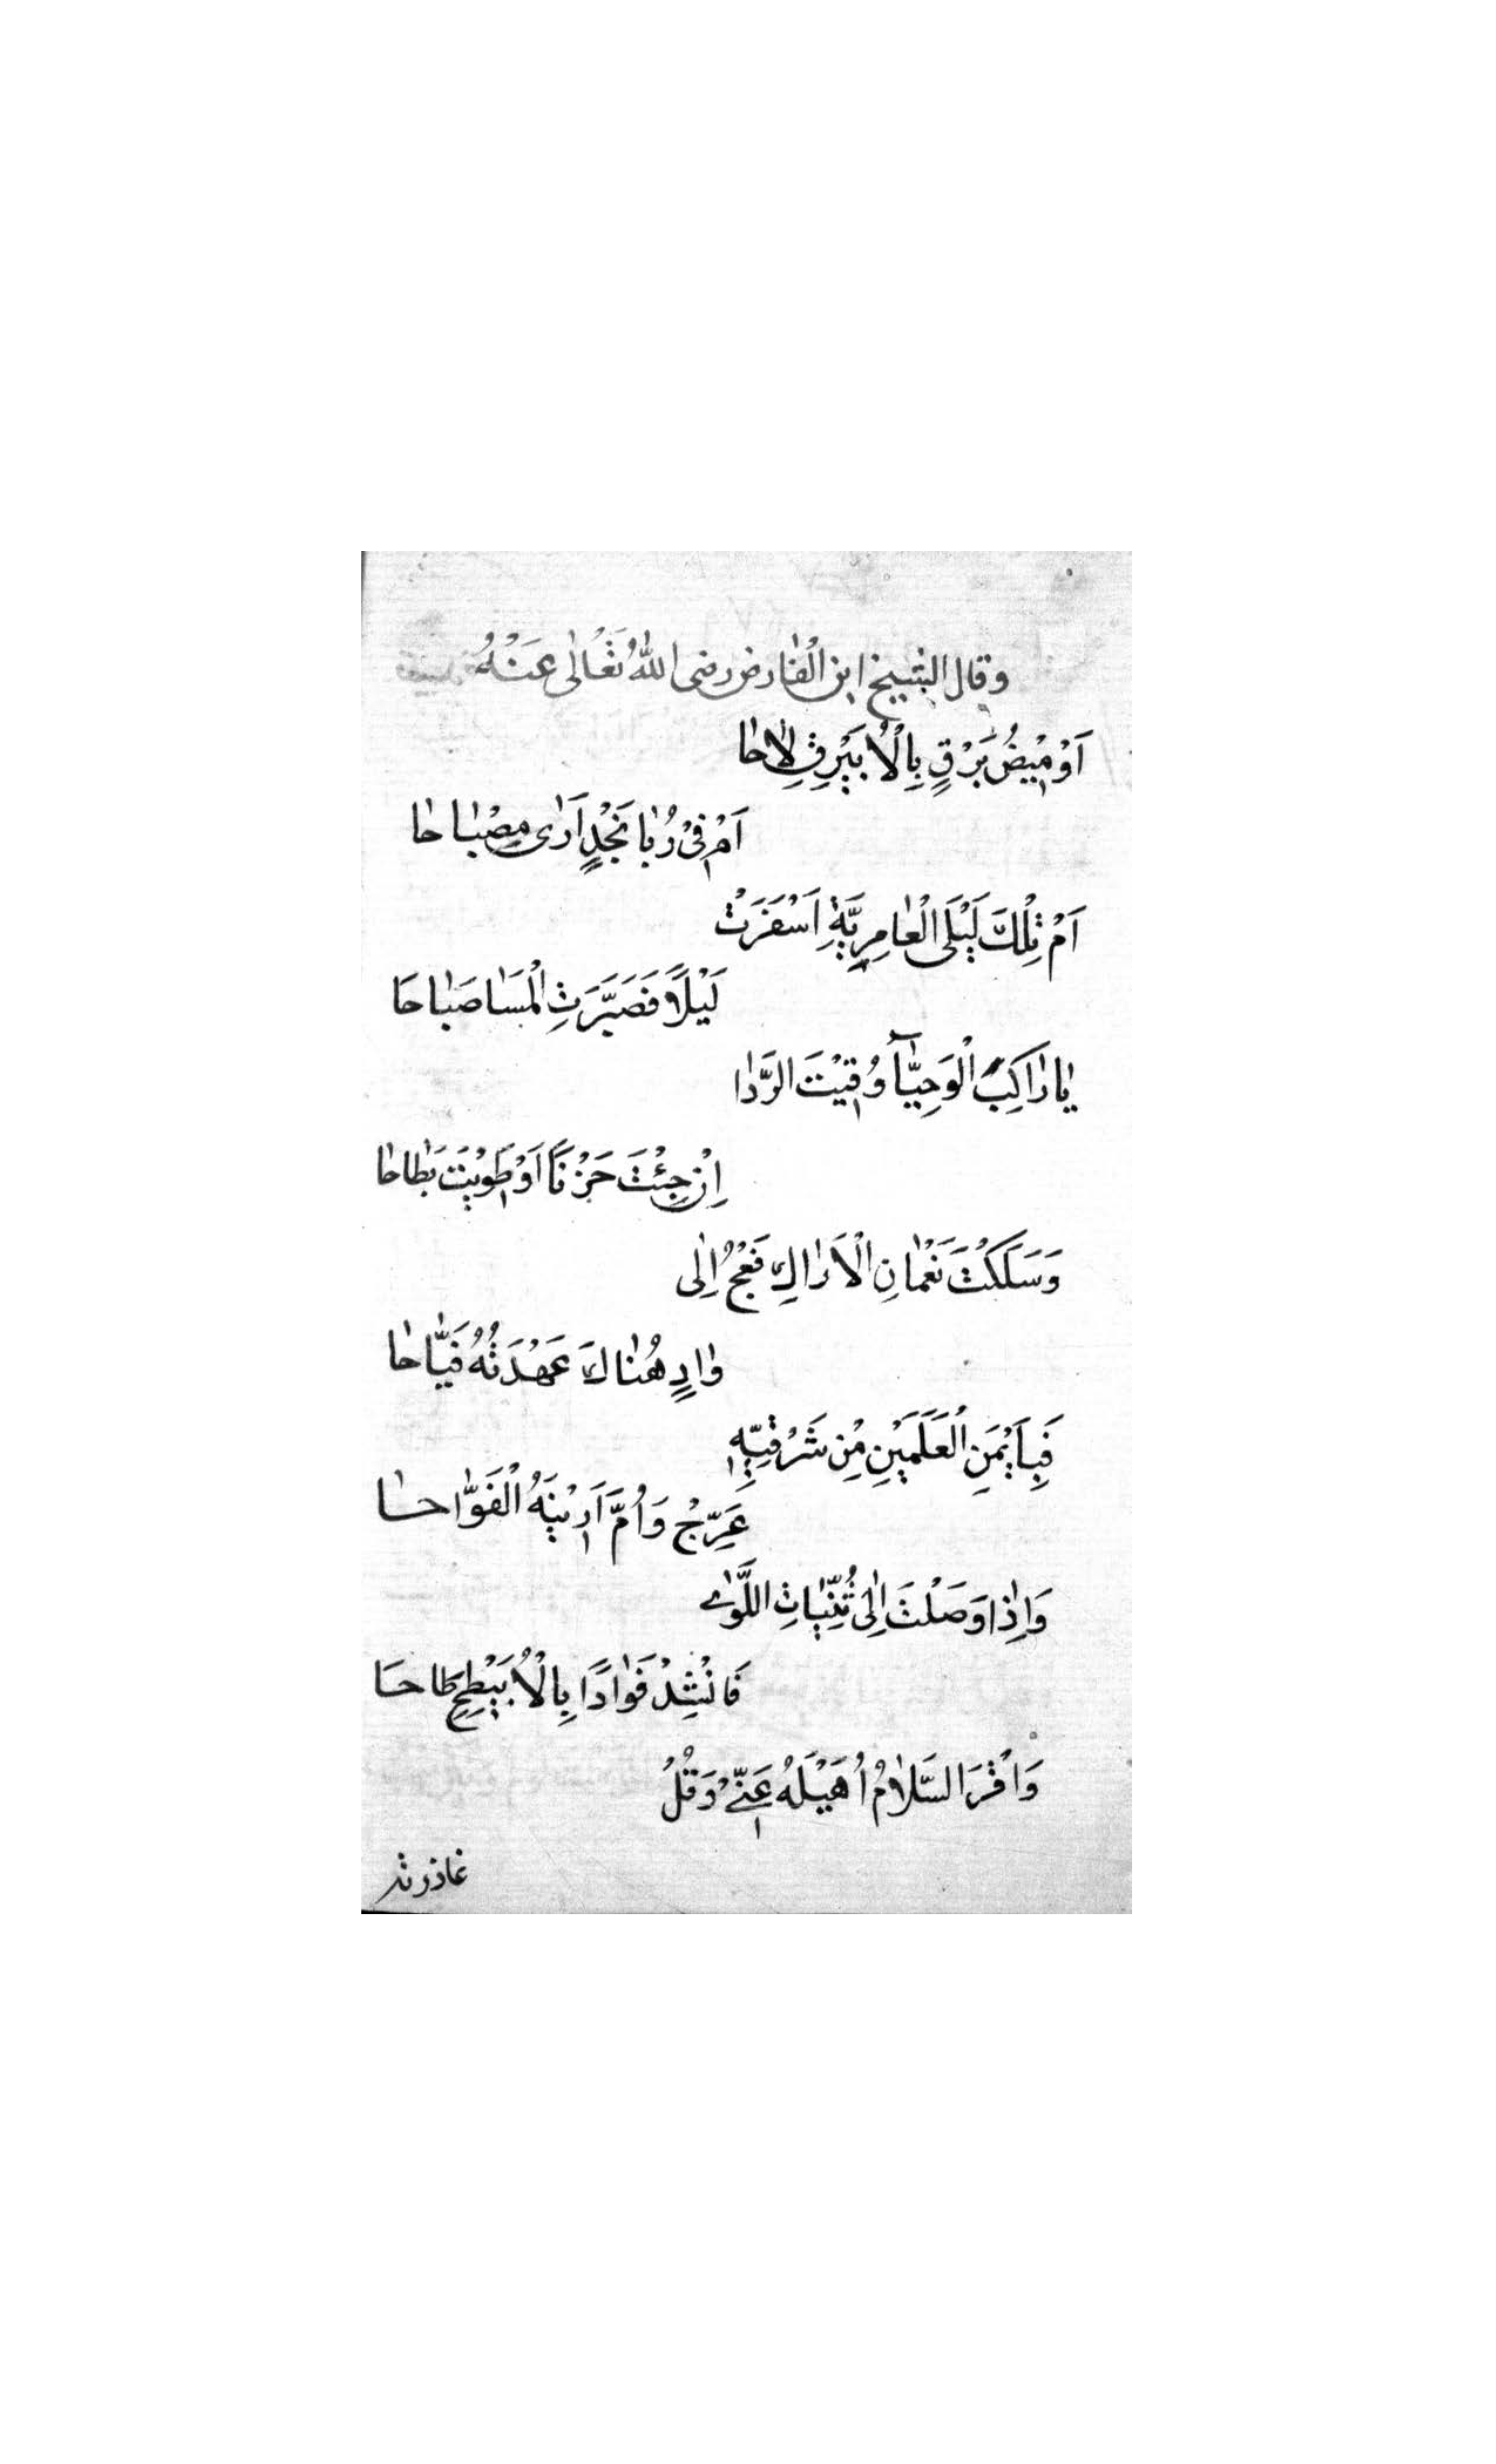 وقال الشيخ ابن الفارض رضى الله تعالى عنه
اَوْمِيْضُ بَرْقٍ بِالْاُبَيْرِقِ لاٰحاٰ
اَمْ فِىْ رُبٰا نَجْدٍ اَرٰى مِصْبٰاحاٰ
اَمْ تِلْكَ لَيْلَى الْعٰامِرِيَّةِ اَسْفَرَتْ
لَيْلاً فَصَيَّرَتِ الْمَسٰا صَبٰاحَا
يٰا رٰاكِبَ الْوَجِيّٰآ وُقِيْتَ الرَّدٰا
اِنْ جِئْتَ حَزْنًا اَوْ طَوَيْتَ بَطٰاحاٰ
وَسَلَكْتَ نَعْمٰانِ الْاَرٰاكِ فَعُجْ اِلٰى
وٰادٍ هُنٰاكَ عَهْدَتُهُ فَيّٰاحاٰ
فَبِاَيْمَنِ الْعَلَمَيْنِ مِنْ شَرْقِيِّهِ
عَرِّجْ وَاُمَّ اَرِيْنَهُ الْفَوّٰاحاٰ
وَاِذٰا وَصَلْتَ اِلٰى ثُنِيّٰاتِ اللَّوٰى
فَانْشِدْ فَوٰادًا بِالْاُبَيْطِحِ طَاحَا
وَاقْرَ السَّلاٰمُ اُهَيْلَهُ عَنِّىْ وَقُلْ
غادرته